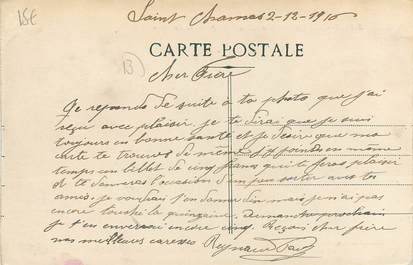 15€
Saint Chamas 2-12-1916
CARTE POSTALE
13
Cher Frère
Je reponds de suite à ta photo que j'ai
reçu avec plaisir. je te dirai que je suis
toujours en bonne santé et je désire que ma
carte te trouve de même. j'y joindre en même
temps un billet de cinq francs qui te feras plaisir
de te donner l'occasion d'un peu sortir avec tes
amis. je voudrais t'en donner dix mais j'en ai pas
encore touché la quinzaine. Dimanche prochain
je t'en enverrai encore cinq. Reçois cher frère
nos meilleures caresses Reynaud